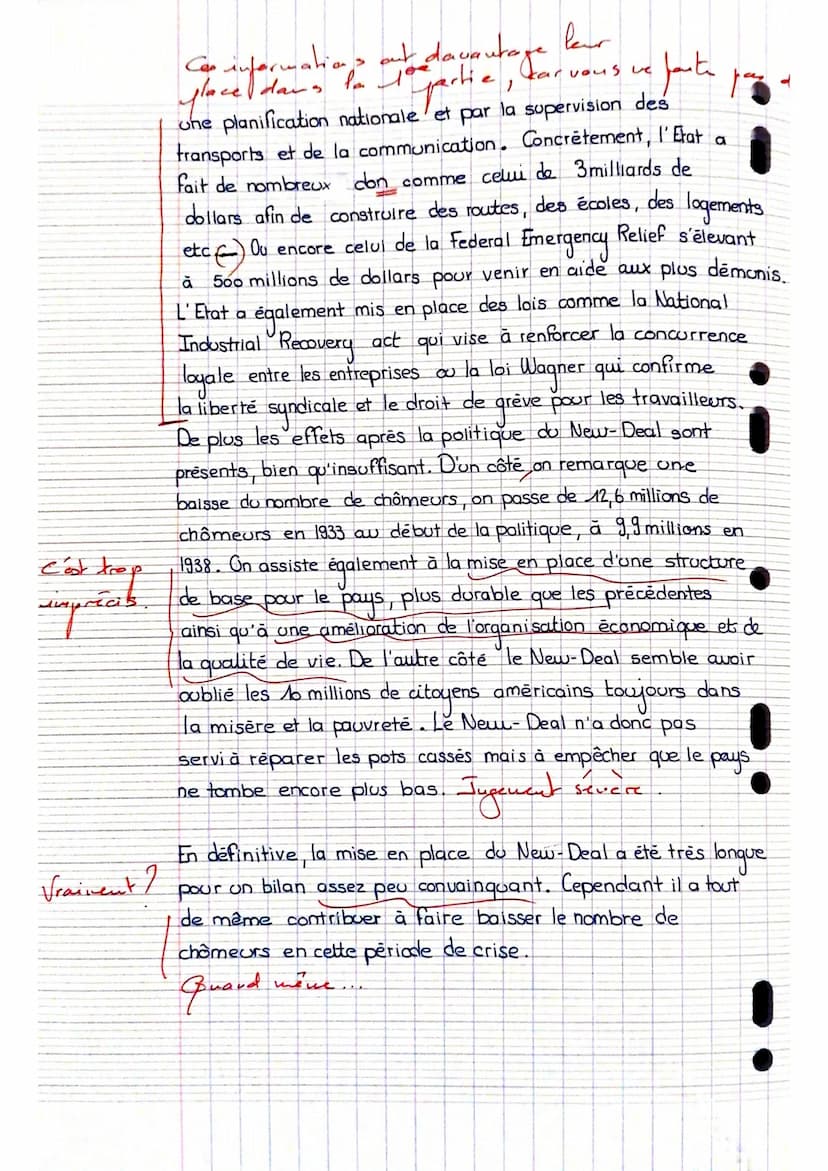 Ces informations ont davantage leur
place dans la 1ère partie, car vous ne faite pas d
une planification nationale et par la supervision des
transports et de la communication. Concrètement, l'Etat a
fait de nombreux don comme celui de 3milliards de
dollars afin de construire des routes, des écoles, des logements
etc (-) Ou encore celui de la Federal Emergency Relief s'élevant
à 500 millions de dollars pour venir en aide aux plus démunis.
L'Etat a également mis en place des lois comme la National
Industrial Recovery act qui vise à renforcer la concurrence
loyale entre les entreprises ou la loi Wagner qui confirme
la liberté syndicale et le droit de grève pour les travailleurs.
De plus les effets après la politique du New-Deal sont
présents, bien qu'insuffisant. D'un côté, on remarque une
baisse du nombre de chômeurs, on passe de 12,6 millions de
chômeurs en 1933 au début de la politique, à 9,9 millions en
C'est trop 1938. On assiste également à la mise en place d'une structure
imprécis. de base pour le pays, plus durable que les précédentes
ainsi qu'à une amélioration de l'organisation économique et de
la qualité de vie. De l'autre côté le New-Deal semble avoir
oublié les 10 millions de citoyens américains toujours dans
la misère et la pauvreté. Le New-Deal n'a donc pas
servi à réparer les pots cassés mais à empêcher que le pays
ne tombe encore plus bas. Jugement sévère.
En définitive, la mise en place du New-Deal a été très longue
Vraiment ? pour un bilan assez peu convainquant. Cependant il a tout
de même contribuer à faire baisser le nombre de
chômeurs en cette période de crise.
Quand même...